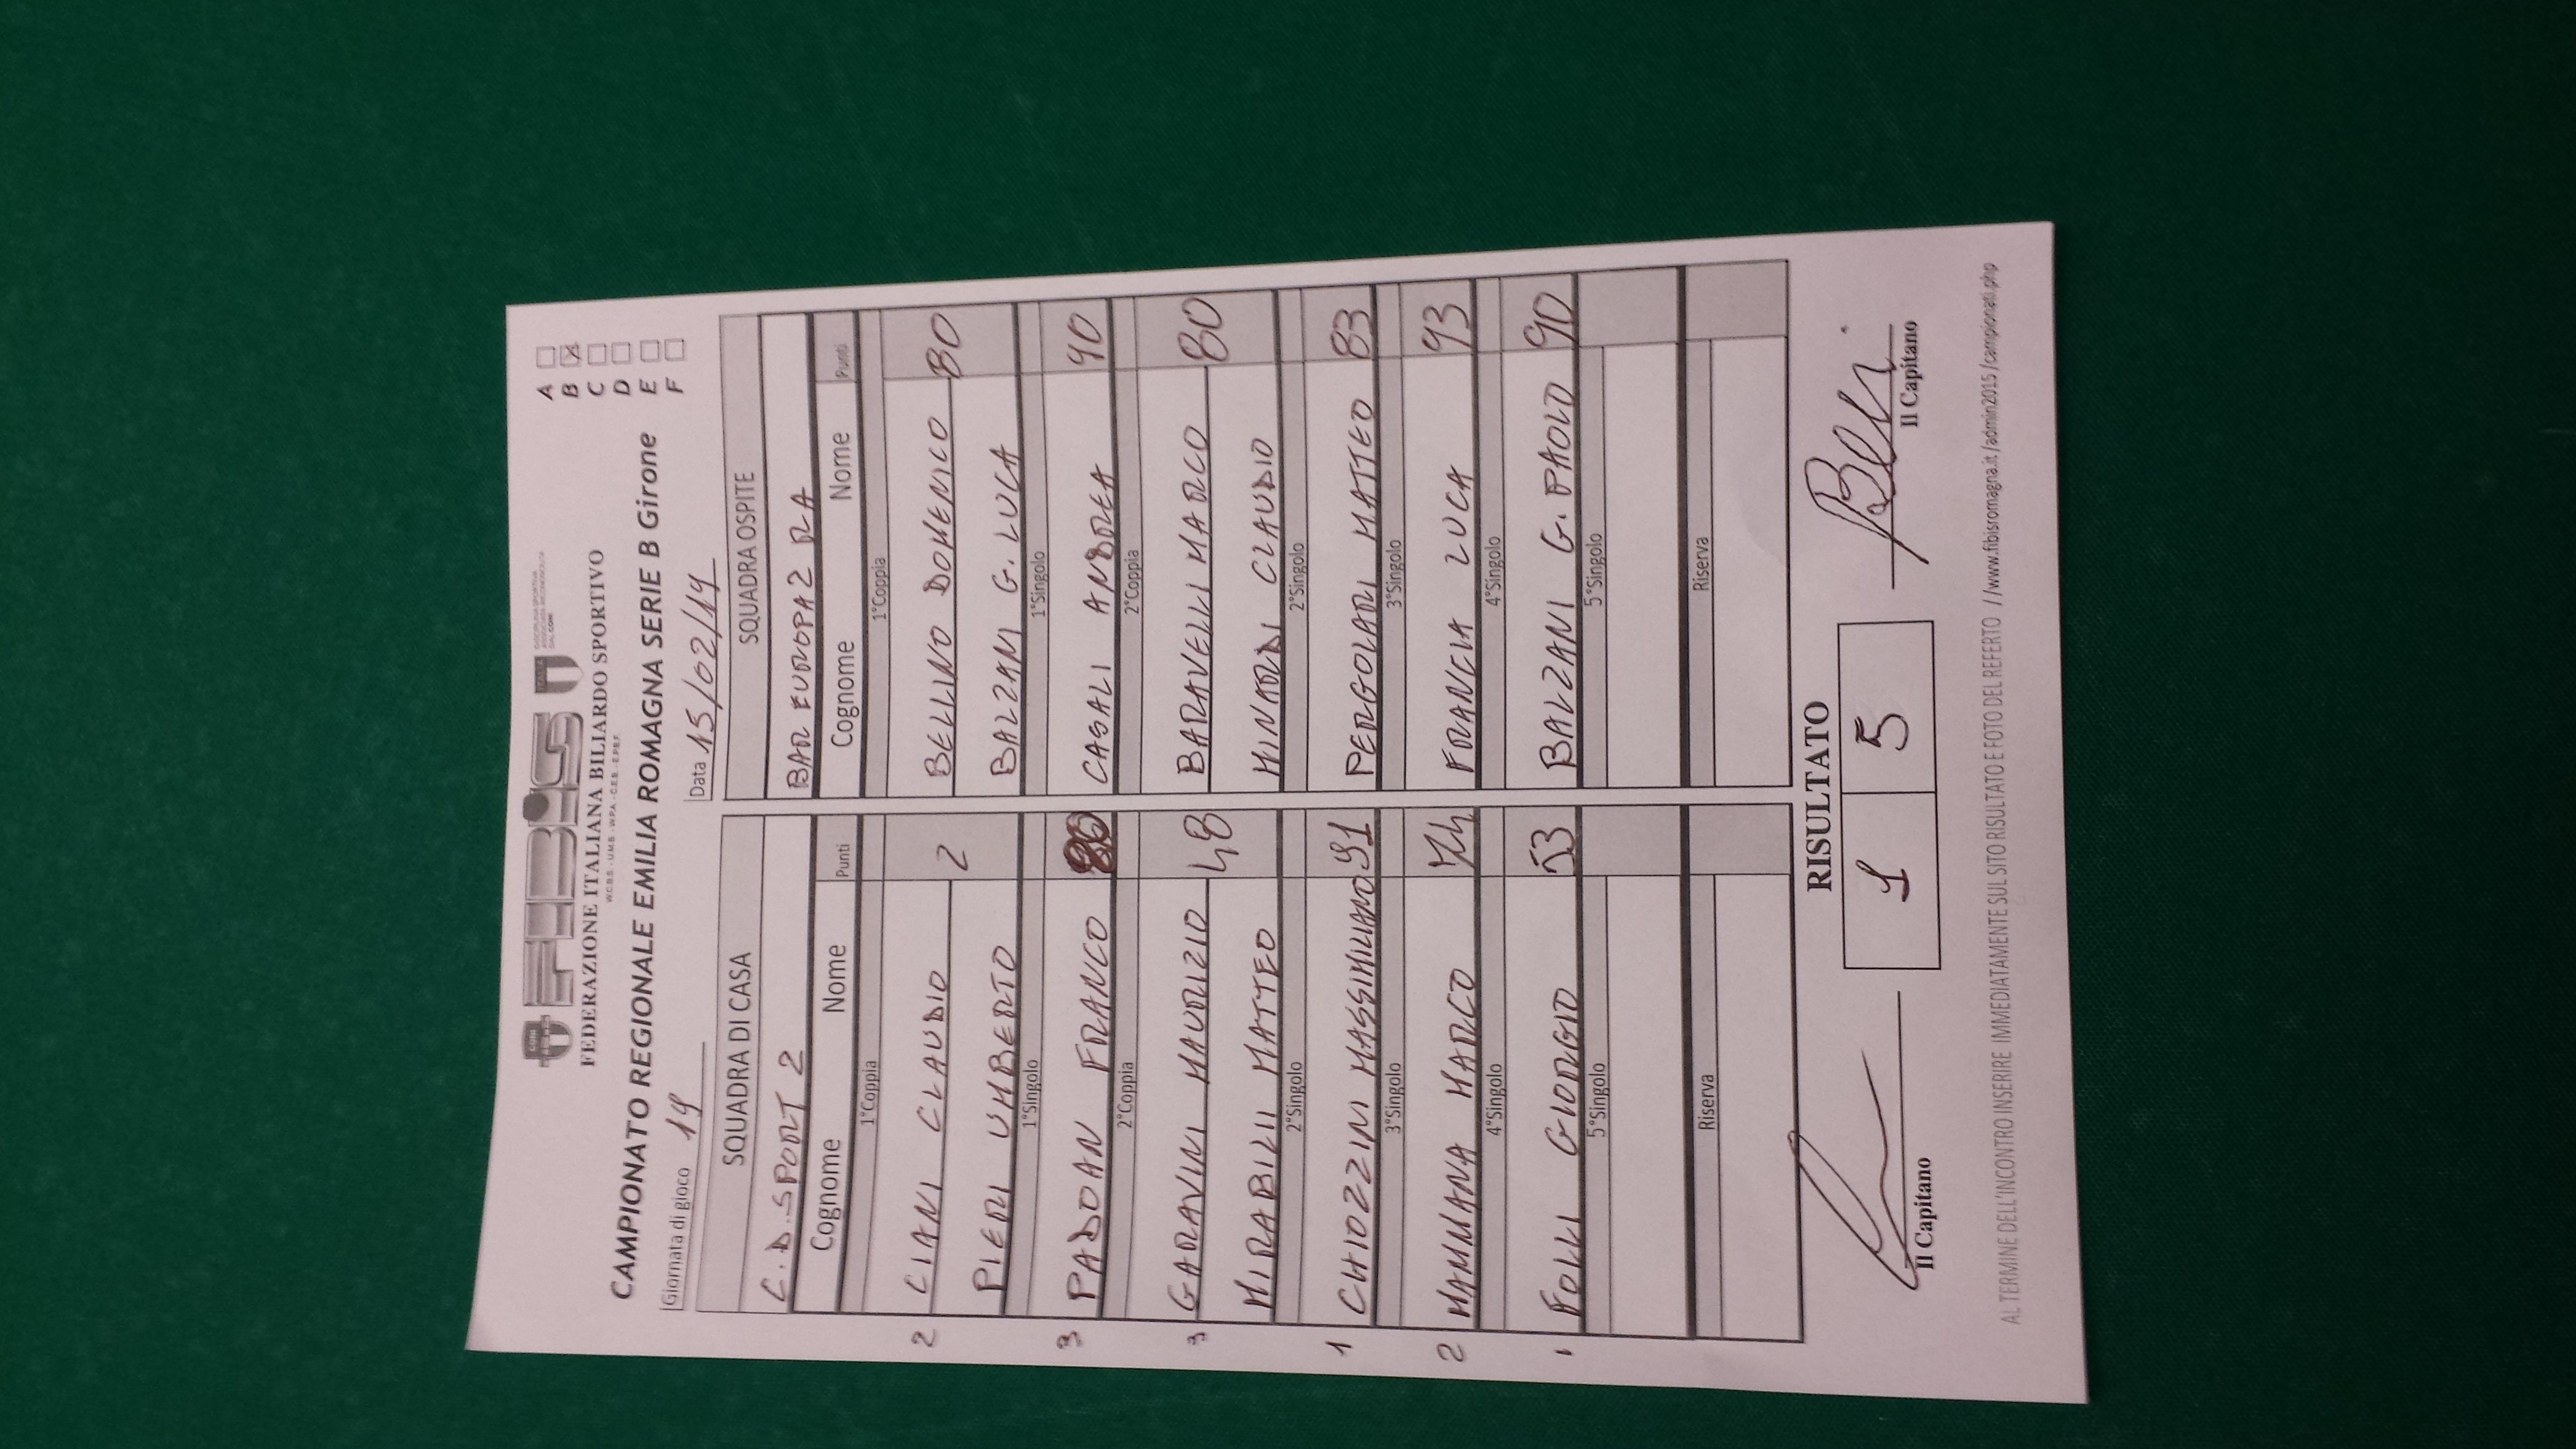 FIBIS
ITALIA
CONI
FEDERAZIONE ITALIANA BILIARDO SPORTIVO
CAMPIONATO REGIONALE EMILIA ROMAGNA SERIE B Girone
A
B X
C
D
E
F
Giornata di gioco 19
Data 15/02/19
SQUADRA DI CASA SQUADRA OSPITE
C.D.SPORT 2 BAR EUROPA 2 RA
Cognome Nome Punti Cognome Nome Punti
1°Coppia 1°Coppia
2 CIANI CLAUDIO 2 BELLINO DOMENICO 80
PIERI UMBERTO BALZANI G. LUCA
1°Singolo 1°Singolo
3 PADOAN FRANCO CASALI ANDREA 90
2°Coppia 2°Coppia
3 GARAVINI MAURIZIO 48 BARAVELLI MARCO 80
MIRABILI MATTEO MINARDI CLAUDIO
2°Singolo 2°Singolo
1 CHIOZZINI MASSIMILIANO 91 PERGOLARI MATTEO 83
3°Singolo 3°Singolo
2 MAMMANA MARCO 74 FRANCIA LUCA 93
4°Singolo 4°Singolo
1 FOLLI GIORGIO 53 BALZANI G. PAOLO 90
5°Singolo 5°Singolo
Riserva Riserva
RISULTATO
1 5
Il Capitano Il Capitano
AL TERMINE DELL'INCONTRO INSERIRE IMMEDIATAMENTE SUL SITO RISULTATO E FOTO DEL REFERTO //www.fibisromagna.it/admin2015/campionati.php